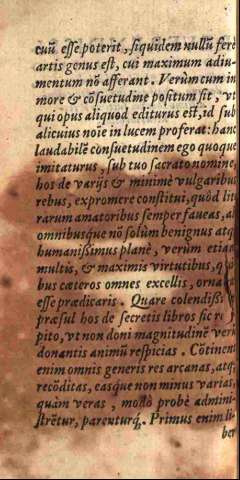 cuũ esse poterit, siquidem nullũ ferè
artis genus est, cui maximum adiu-
mentum nõ afferant. Verùm cum in
more & cõsuetudine positum sit, vt
qui opus aliquod editurus est, id sub
alicuius noĩe in lucem proferat: hanc
laudabilẽ consuetudinem ego quoque
imitaturus, sub tuo sacrato nomine,
hos de varijs & minimè vulgaribus
rebus, expromere constitui, quòd lit
rarum amatoribus semper faueas, al
omnibusque nõ solùm benignus atq;
humanissimus planè, verùm etiam
multis, & maximis virtutibus, q
bus cæteros omnes excellis, orna
esse prædicaris. Quare colendiss
præsul hos de secretis libros sic re
pito, vt non doni magnitudinẽ verù
donantis animũ respicias. Cõtinent
enim omnis generis res arcanas, atq;
recõditas, easque non minus varias,
quàm veras, modò probè admini-
strẽtur, parenturq́;. Primus enim li-
ber